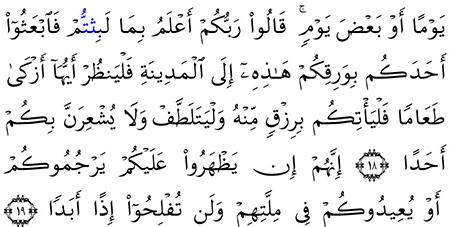 يَوْمًا أَوْ بَعْضَ يَوْمٍۚ قَالُوا۟ رَبُّكُمْ أَعْلَمُ بِمَا لَبِثْتُمْ فَٱبْعَثُوٓا۟
أَحَدَكُم بِوَرِقِكُمْ هَـٰذِهِۦٓ إِلَى ٱلْمَدِينَةِ فَلْيَنظُرْ أَيُّهَآ أَزْكَىٰ
طَعَامًا فَلْيَأْتِكُم بِرِزْقٍ مِّنْهُ وَلْيَتَلَطَّفْ وَلَا يُشْعِرَنَّ بِكُمْ
أَحَدًا ١٨ إِنَّهُمْ إِن يَظْهَرُوا۟ عَلَيْكُمْ يَرْجُمُوكُمْ
أَوْ يُعِيدُوكُمْ فِى مِلَّتِهِمْ وَلَن تُفْلِحُوٓا۟ إِذًا أَبَدًا ١٩